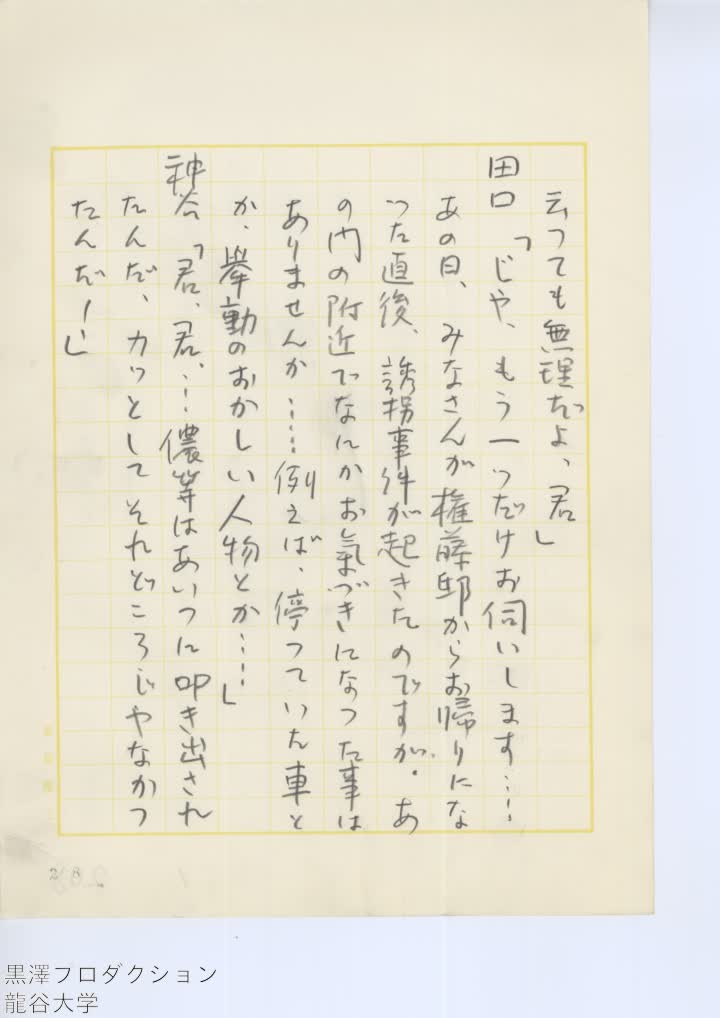 云つても無理だよ、君」
田口「じや、もう一つだけお伺いします…!
あの日、みなさんが権藤邸からお帰りにな
つた直後、誘拐事件が起きたのですが、あ
の門の附近でなにかお氣づきになつた事は
ありませんか……例えば、停つていた車と
か、挙動のおかしい人物とか…!」
神谷「君、君、…儂等はあいつに叩き出され
たんだ、カッとしてそれどころじやなかつ
たんだ!」
黒澤プロダクション
龍谷大学